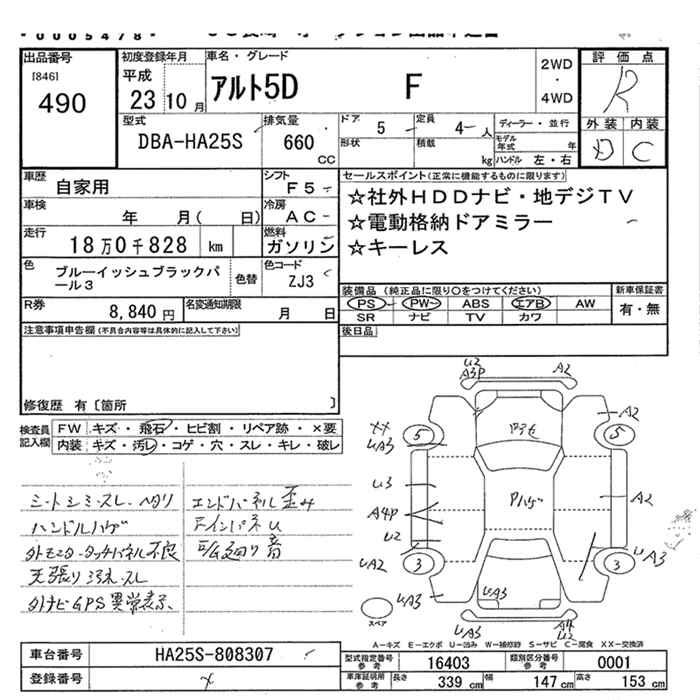 00005478
出品番号 初度登録年月 車名・グレード 2WD・4WD 評価点
[846]
490
平成
23 10月
アルト5D F
R
外装 内装
D C
型式 排気量 ドア 5 定員 4 人 ディーラー・並行
DBA-HA25S 660 CC 形状 積載 kg モデル年式 年
ハンドル 左・右
車歴 自家用 シフト F5
車検 年 月( 日) 冷房 AC
走行 18万0千828 km 燃料 ガソリン
色 ブルーイッシュブラックパール3 色替 色コード ZJ3
R券 8,840円 名変通知期限 月 日
セールスポイント(正常に機能するものに限ります)
☆社外HDDナビ・地デジTV
☆電動格納ドアミラー
☆キーレス
装備品(純正品に限り○をつけてください) 新車保証書
PS PW ABS エアB AW 有・無
SR ナビ TV カワ
後日品
注意事項申告欄(不具合内容等は具体的に記入して下さい)
修復歴 有〔箇所 〕
検査員記入欄 FW キズ・飛石・ヒビ割・リペア跡・×要
内装 キズ・汚レ・コゲ・穴・スレ・キレ・破レ
シートシミ・スレ・ヘタリ
ハンドルハゲ
外モニタータッチパネル不良
天張り汚れ・スレ
外ナビGPS異常表示
エンドパネル歪み
U2
A3P A2
XX
UA3 5 5 A2
U3
A4P
U2 A2
UA2 3 3 UA3
Pハゲ
UA3 UA3
UA3 A4
U2
スペア
A-キズ E-エクボ U-凹み W-補修跡 S-サビ C-腐食 XX-交換済
車台番号 HA25S-808307
登録番号
型式指定番号 参考 16403 類別区分番号 参考 0001
車庫証明所 参考 長さ 339 cm 幅 147 cm 高さ 153 cm